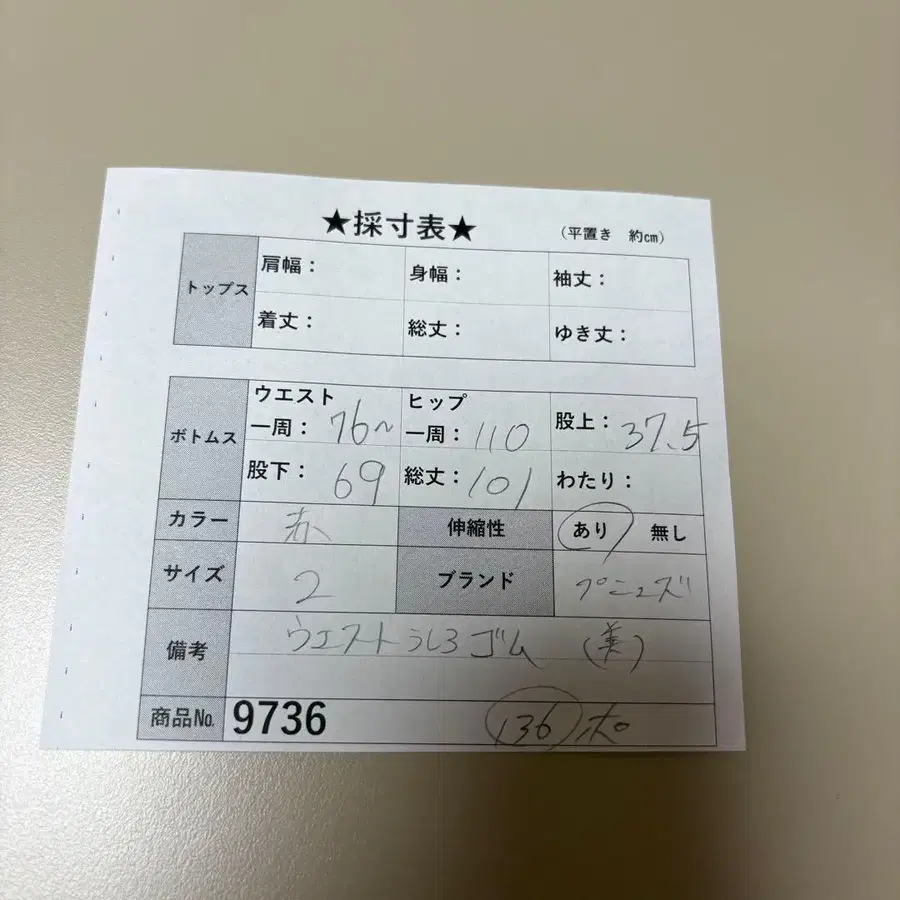 ★採寸表★ (平置き 約cm)
トップス 肩幅: 身幅: 袖丈:
着丈: 総丈: ゆき丈:
ボトムス ウエスト一周: 76~ ヒップ一周: 110 股上: 37.5
股下: 69 総丈: 101 わたり:
カラー 赤 伸縮性 あり 無し
サイズ 2 ブランド プニュズ
備考 ウエストうしろゴム (美)
商品No. 9736 136 ホ